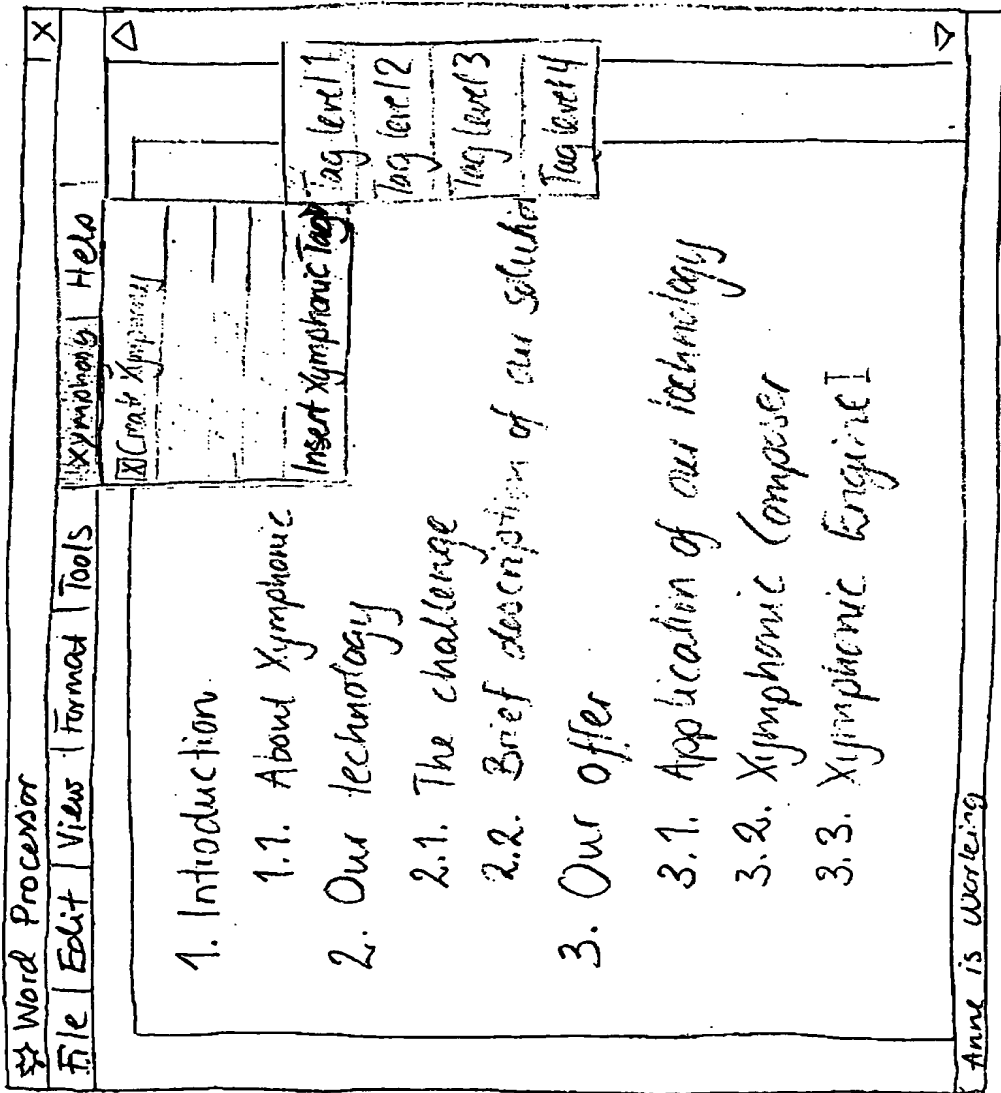 Word Processor X
File | Edit | View | Format | Tools | Xymphony | Help
Create Xymphony
Insert Xymphonic Tag
Tag level 1
Tag level 2
Tag level 3
Tag level 4
1. Introduction
1.1. About Xymphonic
2. Our technology
2.1. The challenge
2.2. Brief description of our solution
3. Our offer
3.1. Application of our technology
3.2. Xymphonic Composer
3.3. Xymphonic Engine
Anne is working